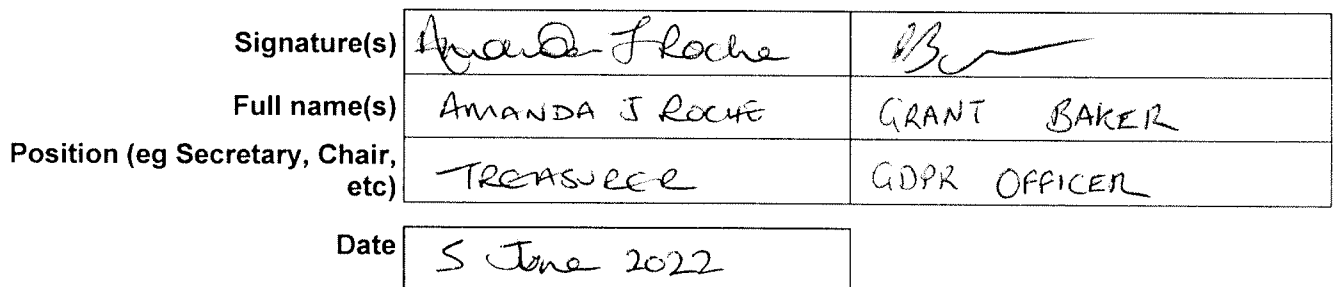 Signature(s) Amanda J Roche
Full name(s) AMANDA J ROCHE GRANT BAKER
Position (eg Secretary, Chair,
etc) TREASURER GDPR OFFICER
Date 5 June 2022